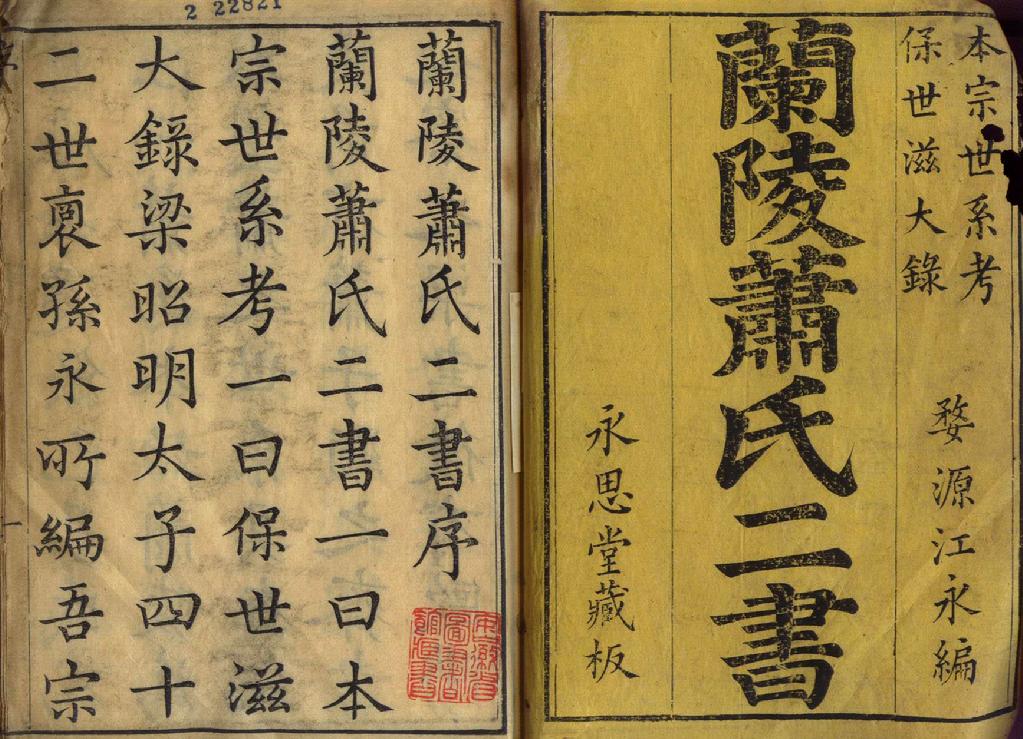 本宗世系考
保世滋大錄
婺源江永編
蘭陵蕭氏二書
永思堂藏板
2 22821
蘭陵蕭氏二書序
蘭陵蕭氏二書一曰本
宗世系考一曰保世滋
大錄梁昭明太子四十
二世裔孫永所編吾宗
安徽省
圖書館
館藏書